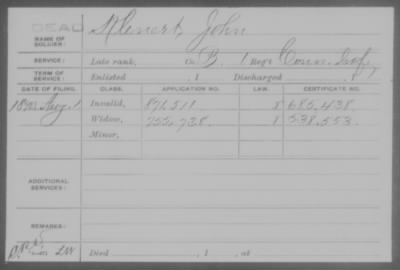 DEAD
NAME OF SOLDIER: Klenert, John
SERVICE: Late rank, Co. B, 1 Reg't Conn. Inf.,
TERM OF SERVICE: Enlisted , 1 Discharged , 1
DATE OF FILING. CLASS. APPLICATION NO. LAW. CERTIFICATE NO.
Aug. 1 Invalid, 871,511 8 685,438
Widow, 755,738 8 538,553
Minor,
ADDITIONAL SERVICES:
REMARKS:
Died , 1 , at